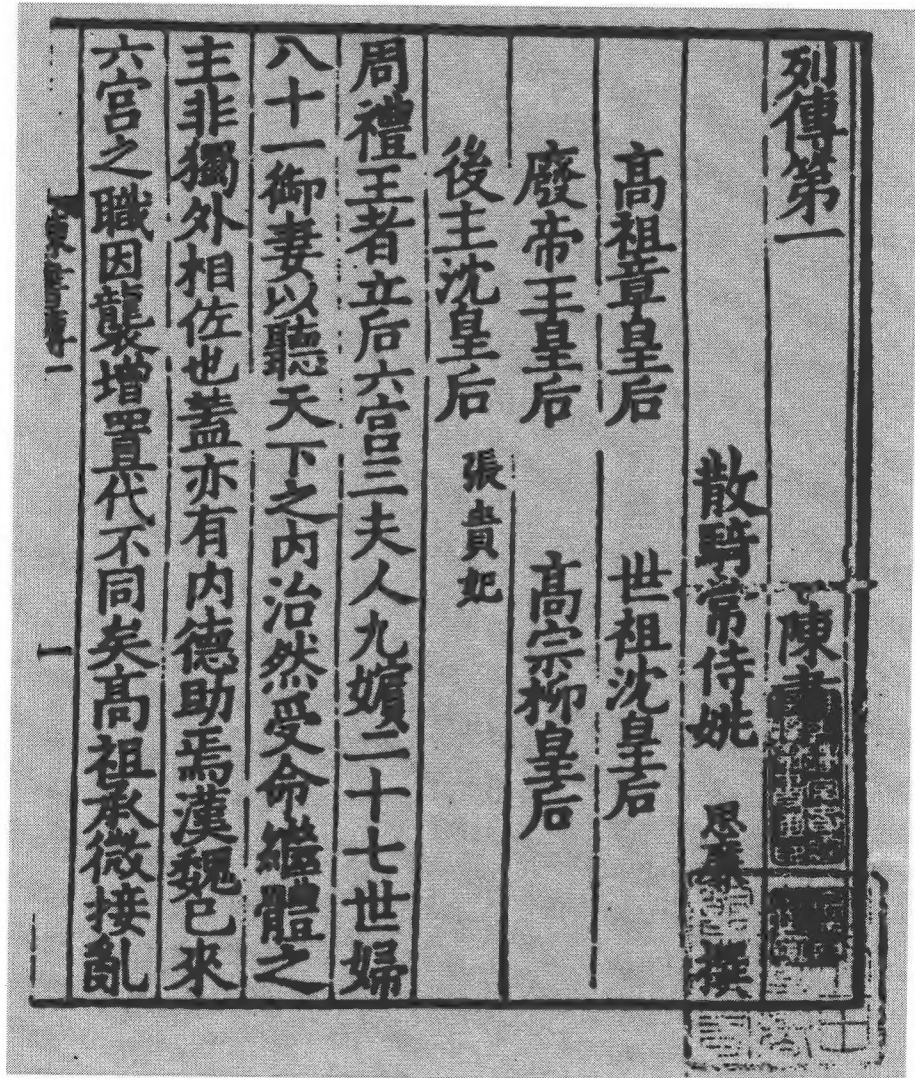 列傳第一 陳書
散騎常侍姚 思廉 撰
髙祖章皇后 世祖沈皇后
廢帝王皇后 髙宗柳皇后
後主沈皇后 張貴妃
周禮王者立后六宮三夫人九嬪二十七世婦
八十一御妻以聽天下之内治然受命繼體之
主非獨外相佐也蓋亦有内德助焉漢魏已來
六宮之職因襲增置代不同矣髙祖承微接亂
陳書傳一
一